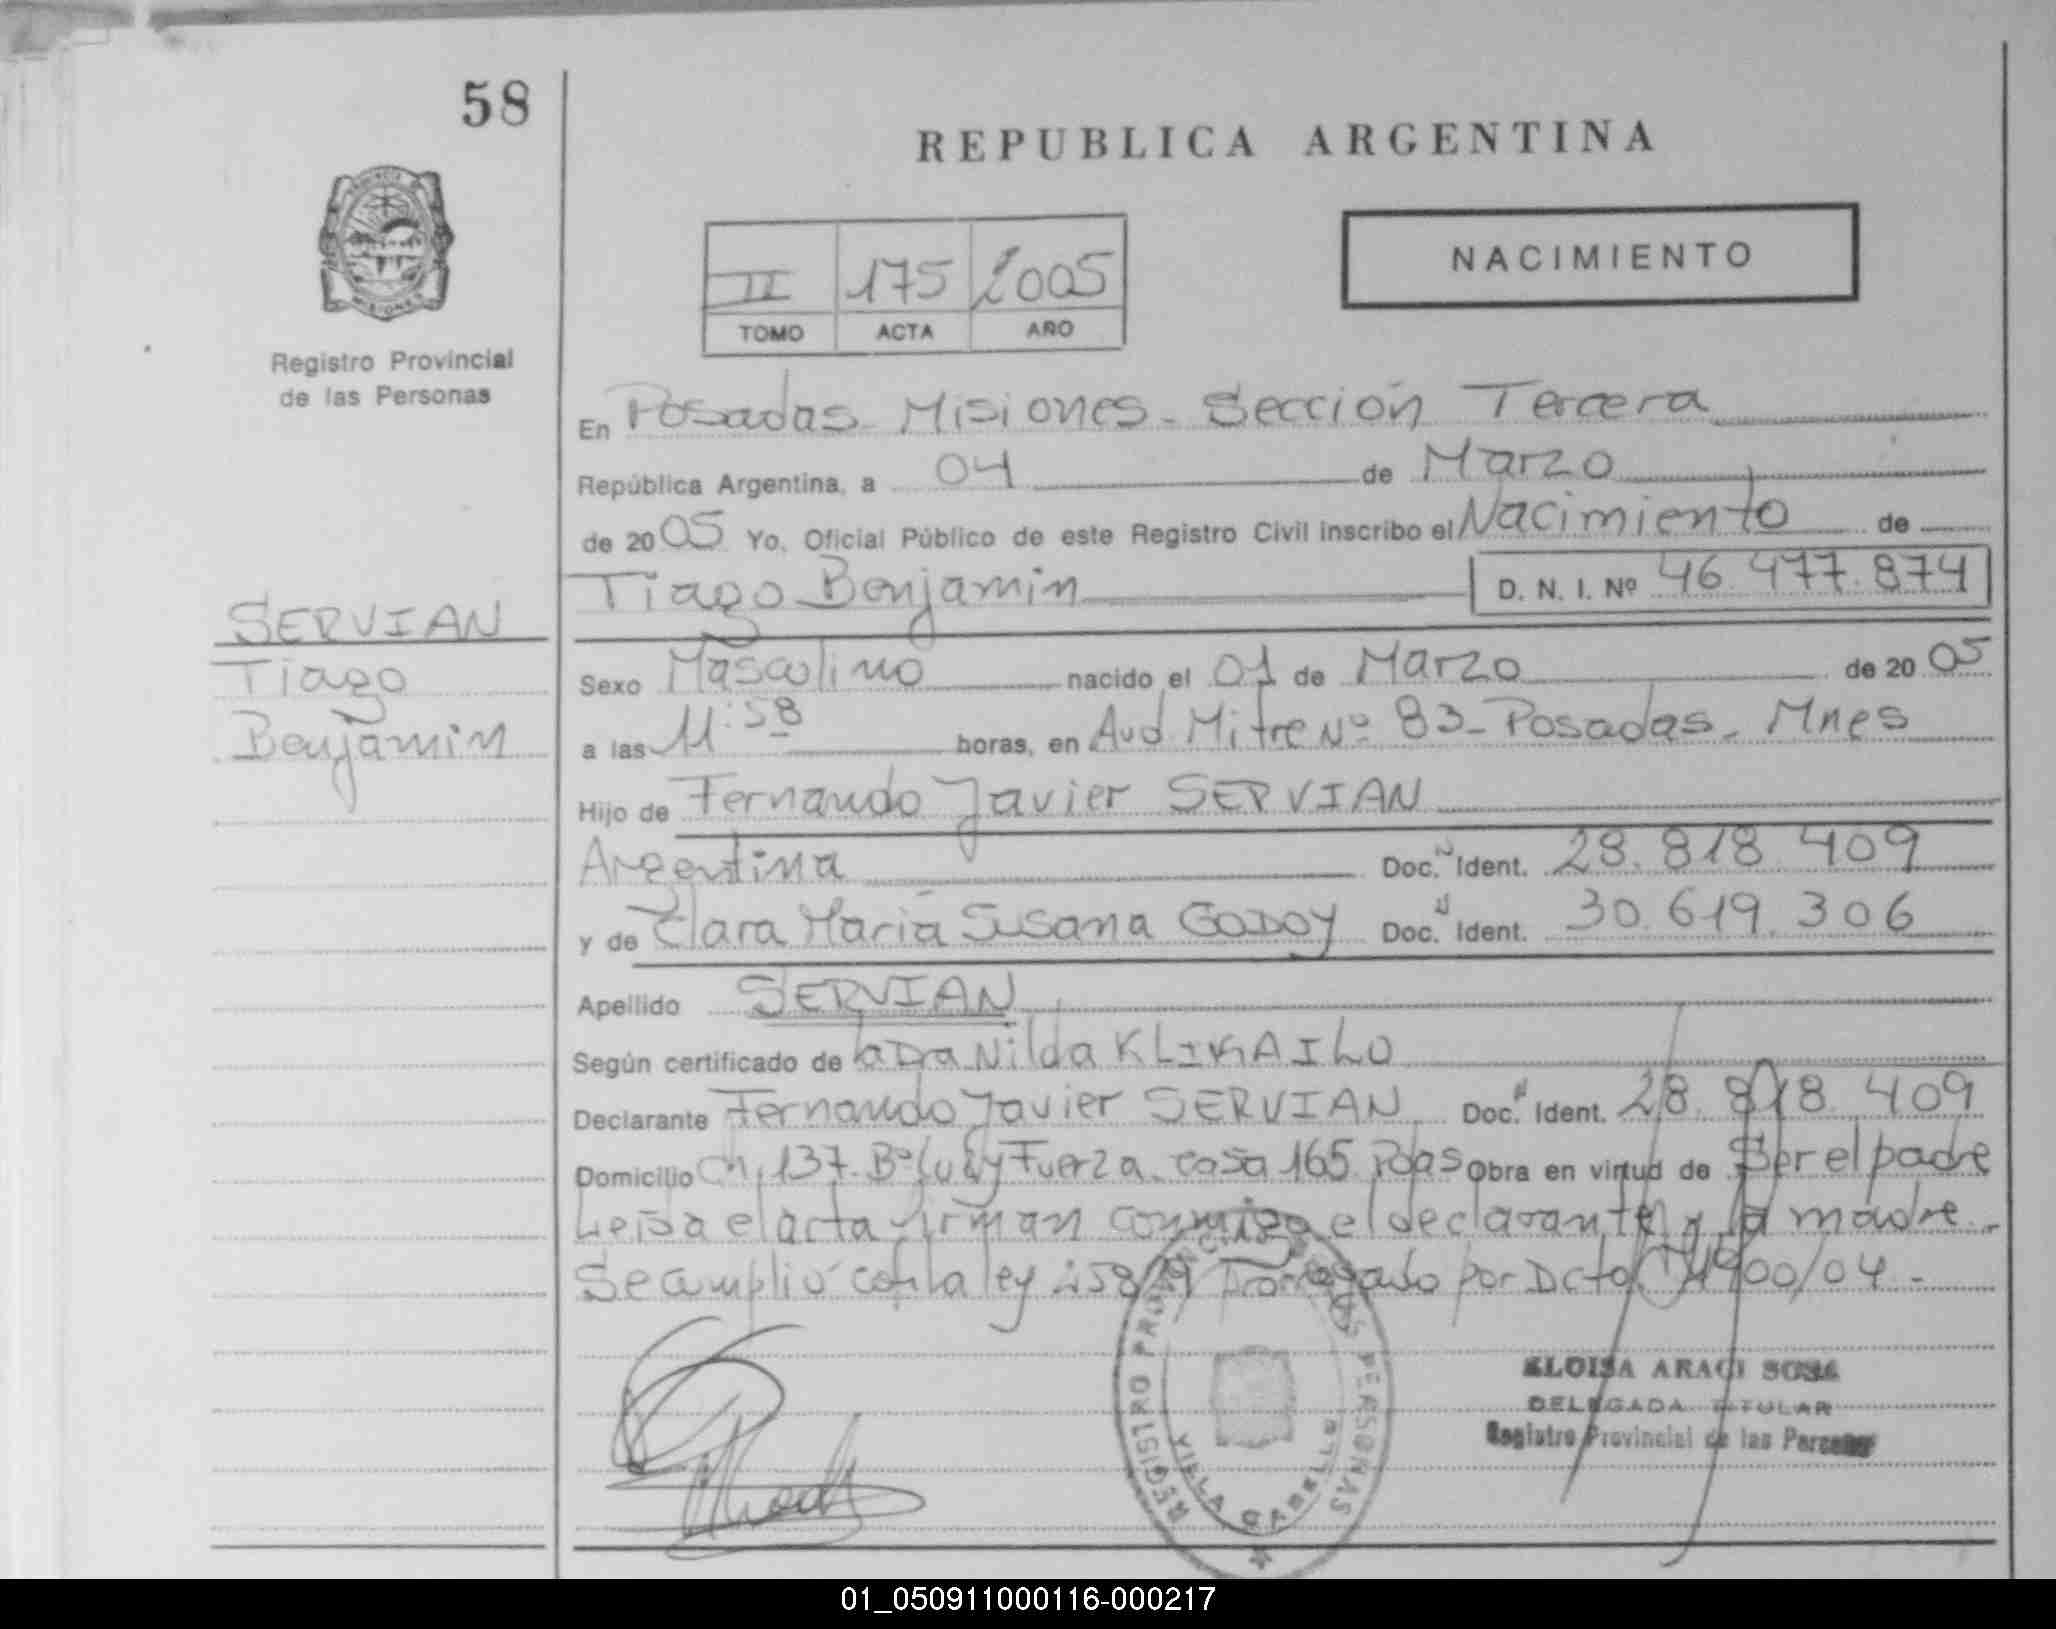 58
REPUBLICA ARGENTINA
NACIMIENTO
II 175 2005
TOMO ACTA AÑO
Registro Provincial
de las Personas
En Posadas - Misiones - Sección Tercera
República Argentina, a 04 de Marzo
de 2005 Yo, Oficial Público de este Registro Civil inscribo el Nacimiento de
Tiago Benjamin D. N. I. Nº 46.477.874
SERVIAN
Tiago
Benjamin
Sexo Masculino nacido el 01 de Marzo de 2005
a las 11:58 horas, en Avd. Mitre Nº 83 - Posadas - Mnes
Hijo de Fernando Javier SERVIAN
Argentina Doc. Ident. 28.818.409
y de Clara Maria Susana GODOY Doc. Ident. 30.619.306
Apellido SERVIAN
Según certificado de la Dra Nilda KLIKAILO
Declarante Fernando Javier SERVIAN Doc. Ident. 28.818.409
Domicilio Ch. 137 Bº Luz y Fuerza casa 165 Pdas Obra en virtud de Ser el padre
Leida el acta firman conmigo el declarante y la madre -
Se cumplio con la ley 25819 Prorrogado por Dcto 1900/04 -
REGISTRO PROVINCIAL DE LAS PERSONAS
VILLA CABELLO
ELOISA ARACI SOSA
DELEGADA TITULAR
Registro Provincial de las Personas
PROVINCIA DE
MISIONES
01_050911000116-000217